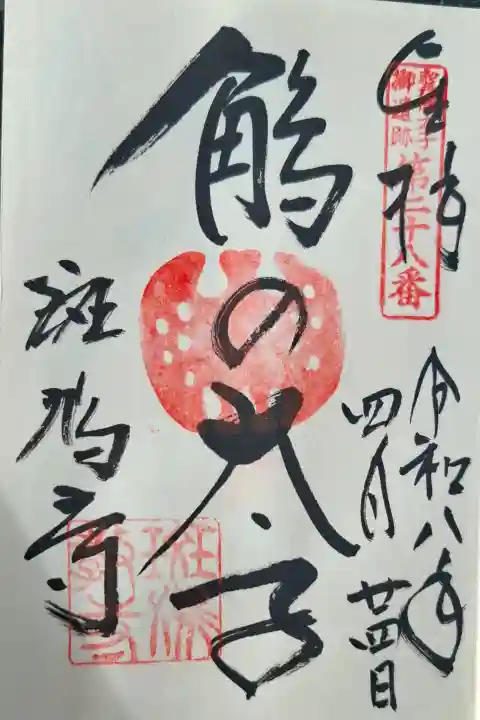 奉拝
聖徳太子
御遺跡
第二十八番
令和八年
四月廿四日
鵤の太子
斑鳩寺